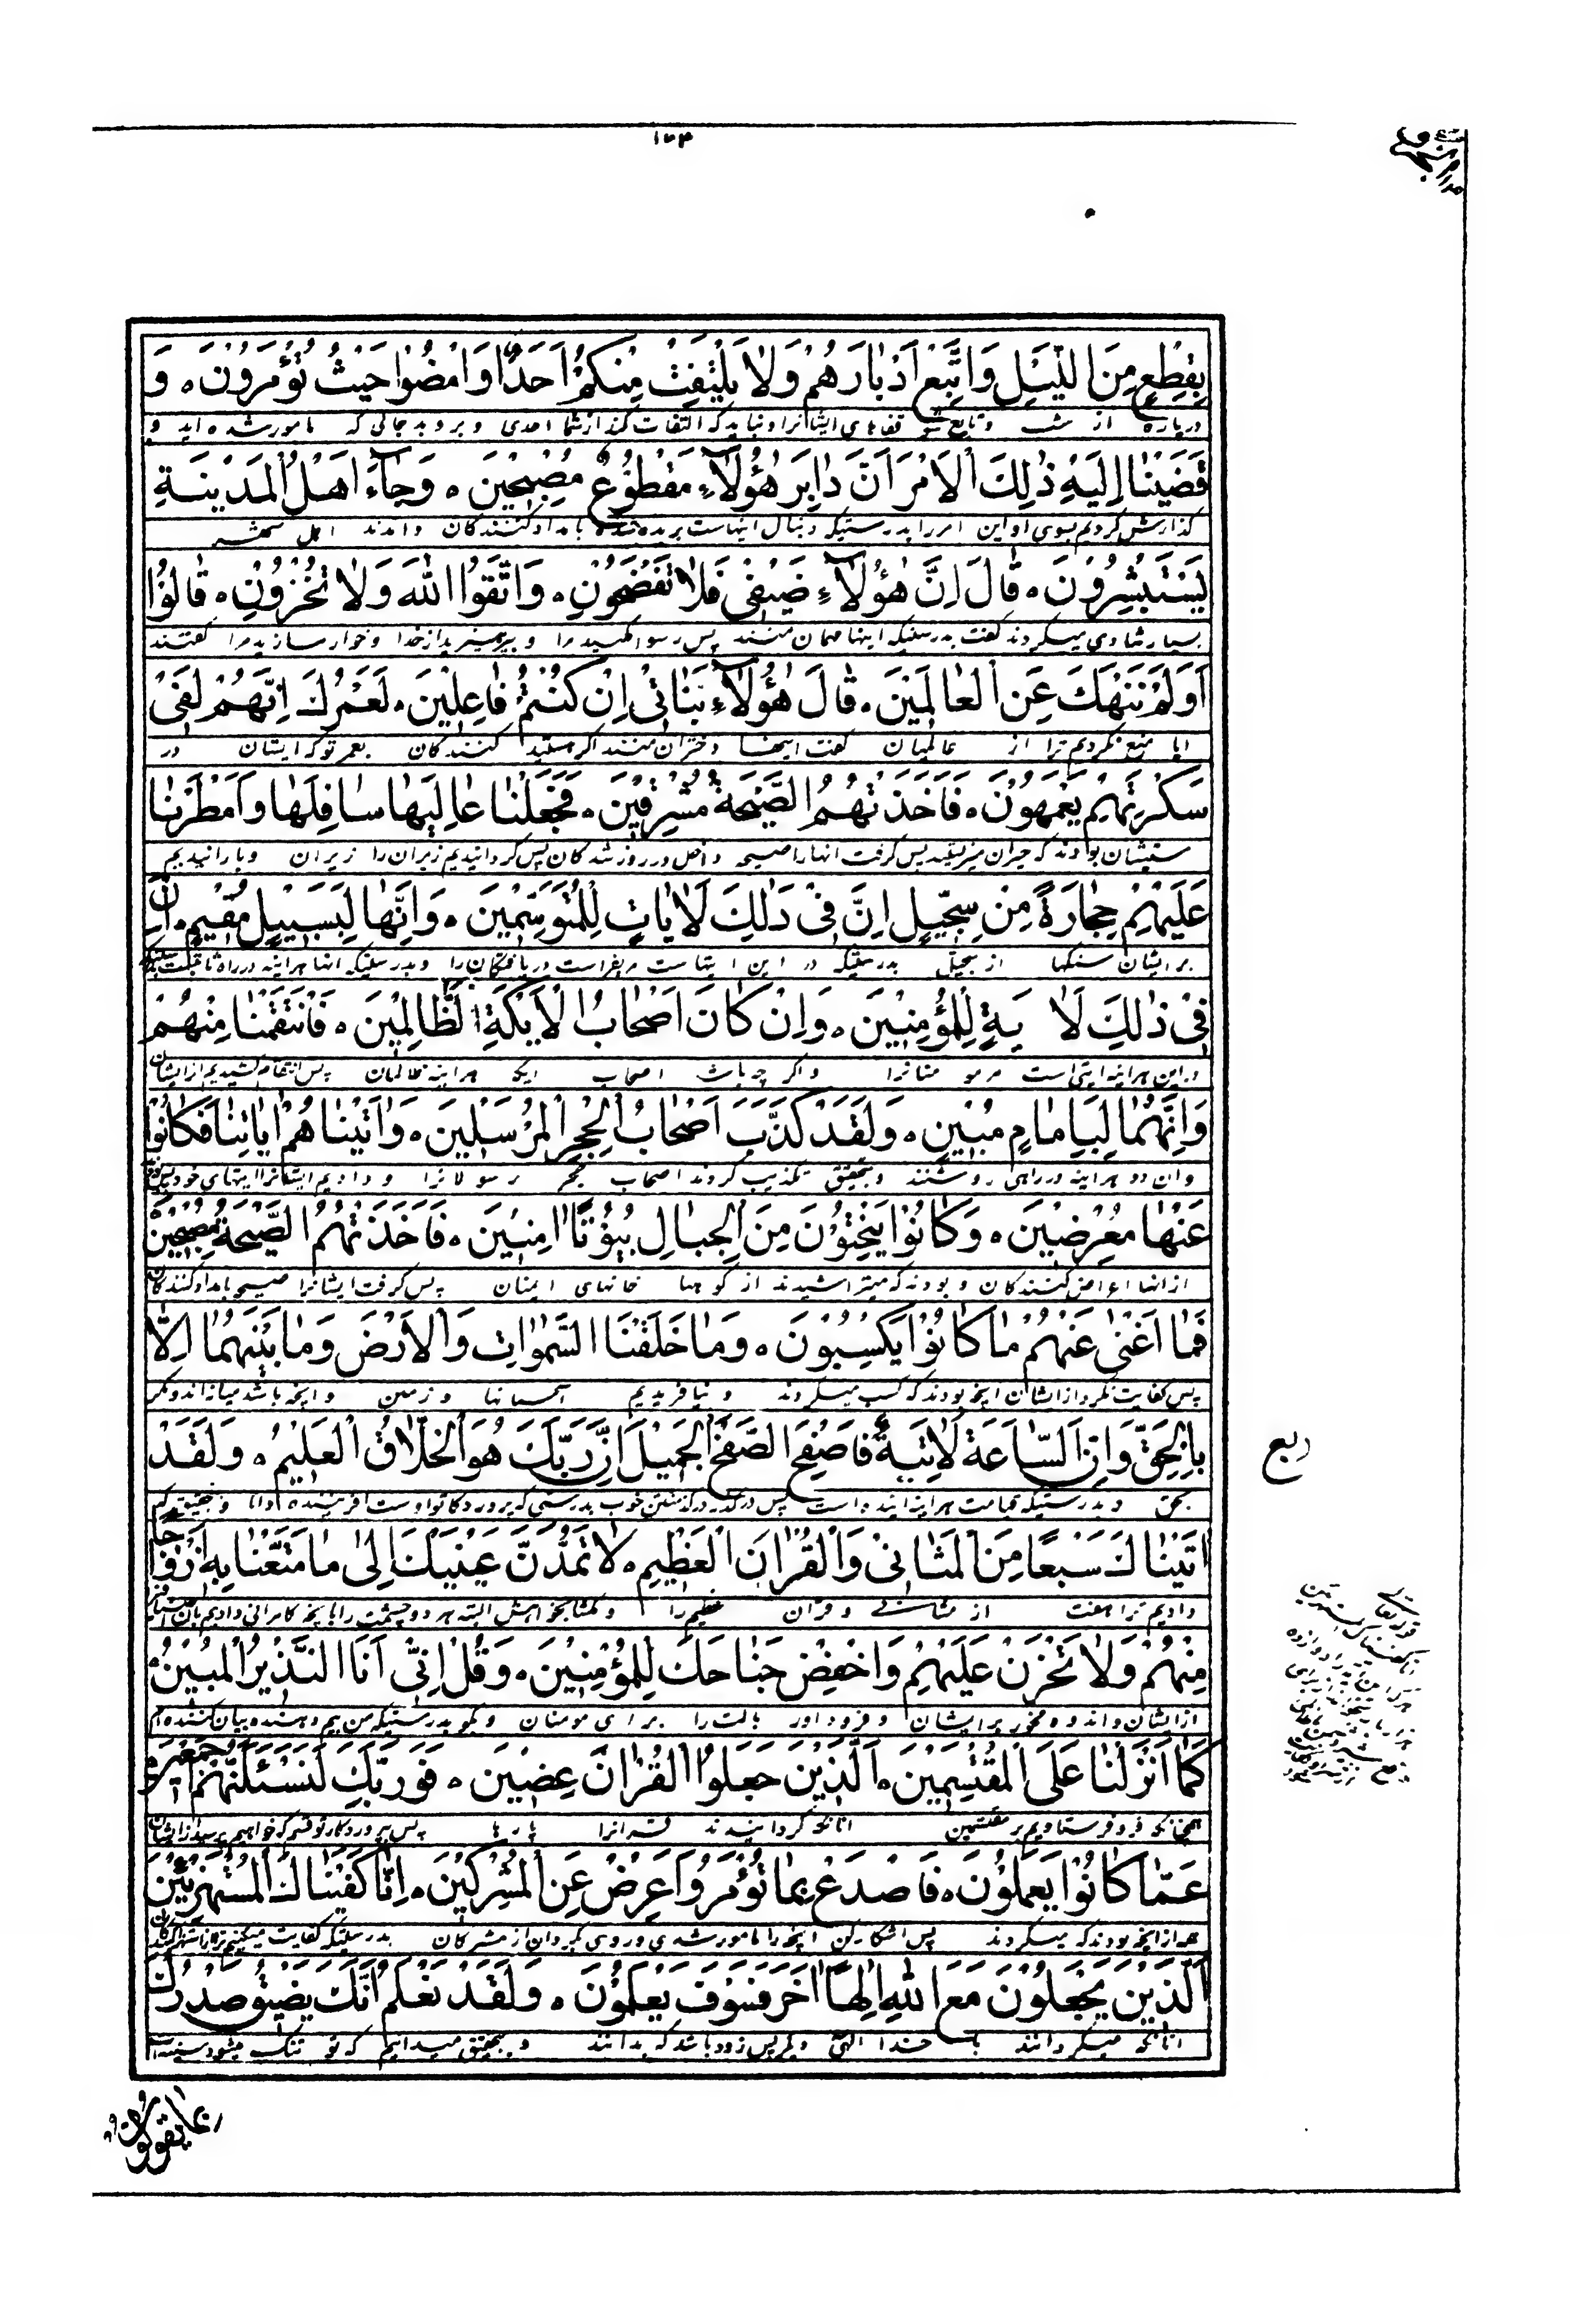 ١٦٤
بِقِطْعٍ مِنَ اللَّيْلِ وَاتَّبِعْ أَدْبَارَهُمْ وَلَا يَلْتَفِتْ مِنْكُمْ أَحَدٌ وَامْضُوا حَيْثُ تُؤْمَرُونَ ۰ وَ
در پاره از شب و تابع شو قفاهای ایشانرا و نباید که التفات کند از شما احدی و بروید جائی که مامور شده اید و
قَضَيْنَا إِلَيْهِ ذٰلِكَ الْأَمْرَ أَنَّ دَابِرَ هٰؤُلَاءِ مَقْطُوعٌ مُصْبِحِينَ ۰ وَجَاءَ أَهْلُ الْمَدِينَةِ
گذارش کردیم بسوی او این امر را بدرستیکه دنبال اینهاست بریده شده بامداد کنندگان و امدند اهل شهر
يَسْتَبْشِرُونَ ۰ قَالَ إِنَّ هٰؤُلَاءِ ضَيْفِي فَلَا تَفْضَحُونِ ۰ وَاتَّقُوا اللهَ وَلَا تُخْزُونِ ۰ قَالُوا
بسیار شادی میکردند گفت بدرستیکه اینها مهمان منند پس رسوا مکنید مرا و بپرهیزید از خدا و خوار مسازید مرا گفتند
أَوَلَمْ نَنْهَكَ عَنِ الْعَالَمِينَ ۰ قَالَ هٰؤُلَاءِ بَنَاتِي إِنْ كُنْتُمْ فَاعِلِينَ ۰ لَعَمْرُكَ إِنَّهُمْ لَفِي
ایا منع نکردیم ترا از عالمیان گفت اینها دختران منند اگر هستید کنندگان بعمر تو که ایشان در
سَكْرَتِهِمْ يَعْمَهُونَ ۰ فَأَخَذَتْهُمُ الصَّيْحَةُ مُشْرِقِينَ ۰ فَجَعَلْنَا عَالِيَهَا سَافِلَهَا وَأَمْطَرْنَا
مستیشان بودند که حیران پس گرفت انها را صیحه داخل در روز شدگان پس گردانیدیم زبران را زیران و بارانیدیم
عَلَيْهِمْ حِجَارَةً مِنْ سِجِّيلٍ إِنَّ فِي ذٰلِكَ لَآيَاتٍ لِلْمُتَوَسِّمِينَ ۰ وَإِنَّهَا لَبِسَبِيلٍ مُقِيمٍ ۰ إِنَّ
بر ایشان سنگها از سجیل بدرستیکه در این ایتهاست و بدرستیکه انها هراینه در راه
فِي ذٰلِكَ لَآيَةً لِلْمُؤْمِنِينَ ۰ وَإِنْ كَانَ أَصْحَابُ الْأَيْكَةِ لَظَالِمِينَ ۰ فَانْتَقَمْنَا مِنْهُمْ
در این هراینه ایتی است مر مومنانرا و اگر چه باشد اصحاب ایکه هراینه ظالمان پس انتقام کشیدیم از ایشان
وَإِنَّهُمَا لَبِإِمَامٍ مُبِينٍ ۰ وَلَقَدْ كَذَّبَ أَصْحَابُ الْحِجْرِ الْمُرْسَلِينَ ۰ وَآتَيْنَاهُمْ آيَاتِنَا فَكَانُوا
و ان دو هراینه در راهی روشنند و بتحقیق تکذیب کردند اصحاب حجر رسولانرا و دادیم ایشانرا ایتهای خود پس
عَنْهَا مُعْرِضِينَ ۰ وَكَانُوا يَنْحِتُونَ مِنَ الْجِبَالِ بُيُوتًا آمِنِينَ ۰ فَأَخَذَتْهُمُ الصَّيْحَةُ مُصْبِحِينَ
از انها اعراض کنندگان و بودند که میتراشیدند از کوهها خانهای ایمنان پس گرفت ایشانرا صیحه بامداد کنندگان
فَمَا أَغْنَى عَنْهُمْ مَا كَانُوا يَكْسِبُونَ ۰ وَمَا خَلَقْنَا السَّمٰوَاتِ وَالْأَرْضَ وَمَا بَيْنَهُمَا إِلَّا
پس کفایت نکرد از ایشان انچه بودند که کسب میکردند و نیافریدیم اسمانها و زمین و انچه باشد میانه اندو مگر
بِالْحَقِّ وَإِنَّ السَّاعَةَ لَآتِيَةٌ فَاصْفَحِ الصَّفْحَ الْجَمِيلَ إِنَّ رَبَّكَ هُوَ الْخَلَّاقُ الْعَلِيمُ ۰ وَلَقَدْ
بحق و بدرستیکه قیامت هراینه اینده است پس درگذر درگذشتن خوب بدرستی که پروردگار تو اوست افریننده دانا و بتحقیق که
ربع
آتَيْنَاكَ سَبْعًا مِنَ الْمَثَانِي وَالْقُرْآنَ الْعَظِيمَ ۰ لَا تَمُدَّنَّ عَيْنَيْكَ إِلَى مَا مَتَّعْنَا بِهِ أَزْوَاجًا
دادیم ترا هفت از مثانی و قران عظیم را البته هر دو چشمت را بانچه کامرانی دادیم بان
مِنْهُمْ وَلَا تَحْزَنْ عَلَيْهِمْ وَاخْفِضْ جَنَاحَكَ لِلْمُؤْمِنِينَ ۰ وَقُلْ إِنِّي أَنَا النَّذِيرُ الْمُبِينُ
از ایشان و اندوه مخور بر ایشان و فرود اور بالت را برای مومنان و بگو بدرستیکه من بیم دهنده بیان کننده ام
كَمَا أَنْزَلْنَا عَلَى الْمُقْتَسِمِينَ ۰ الَّذِينَ جَعَلُوا الْقُرْآنَ عِضِينَ ۰ فَوَرَبِّكَ لَنَسْئَلَنَّهُمْ أَجْمَعِينَ
همچنانکه فرو فرستادیم بر مقتسمین انانکه گردانیدند قرانرا پارها پس بپروردگار تو قسم که خواهیم پرسید از ایشان
عَمَّا كَانُوا يَعْمَلُونَ ۰ فَاصْدَعْ بِمَا تُؤْمَرُ وَأَعْرِضْ عَنِ الْمُشْرِكِينَ ۰ إِنَّا كَفَيْنَاكَ الْمُسْتَهْزِئِينَ
همه از انچه بودند که میکردند پس اشکار کن انچه را مامور شدی و روی بگردان از مشرکان بدرستیکه کفایت میکنیم ترا از
الَّذِينَ يَجْعَلُونَ مَعَ اللهِ إِلٰهًا آخَرَ فَسَوْفَ يَعْلَمُونَ ۰ وَلَقَدْ نَعْلَمُ أَنَّكَ يَضِيقُ صَدْرُكَ
انانکه میگردانند با خدا الهی دیگر پس زود باشد که بدانند و بتحقیق میدانیم که تو تنگ میشود سینه ات
بما یقولون